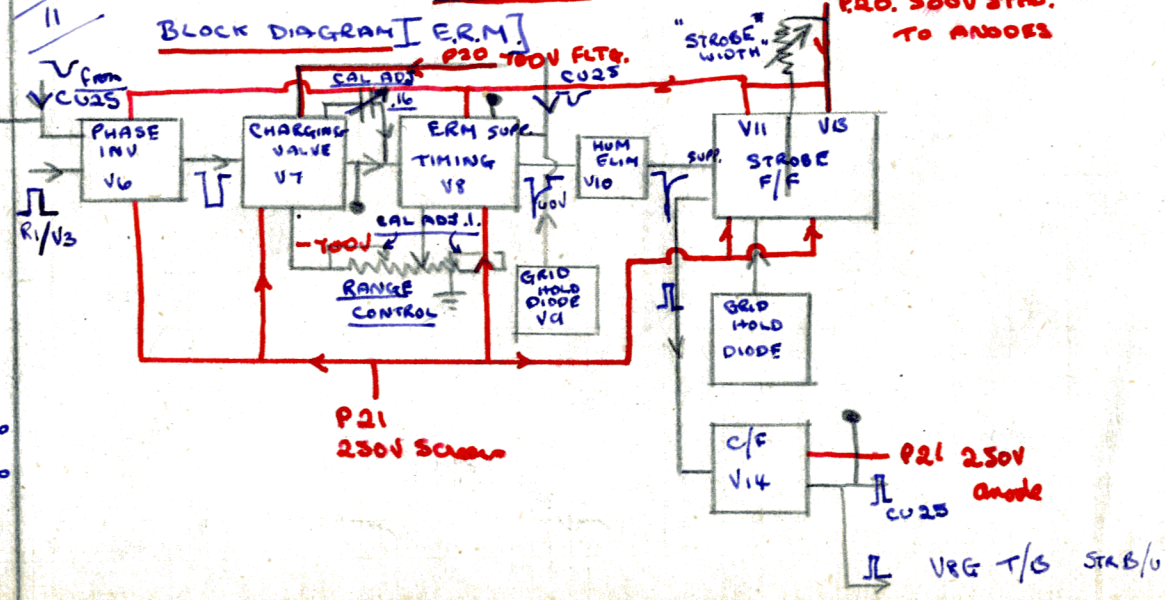 11
BLOCK DIAGRAM [E.R.M]
P20 700V FLTG.
"STROBE
WIDTH"
P20. 300V STAB.
TO ANODES
from
CU25
CAL ADJ
16
CU25
PHASE
INV
V6
CHARGING
VALVE
V7
ERM SUPP.
TIMING
V8
HUM
ELIM
V10
SUPP.
V11 V13
STROBE
F/F
R1/V3
40V
CAL ADJ. 1.
-700V
RANGE
CONTROL
GRID
HOLD
DIODE
V9
GRID
HOLD
DIODE
P21
250V Screen
C/F
V14
P21 250V
anode
CU25
V8G T/B STRB/U